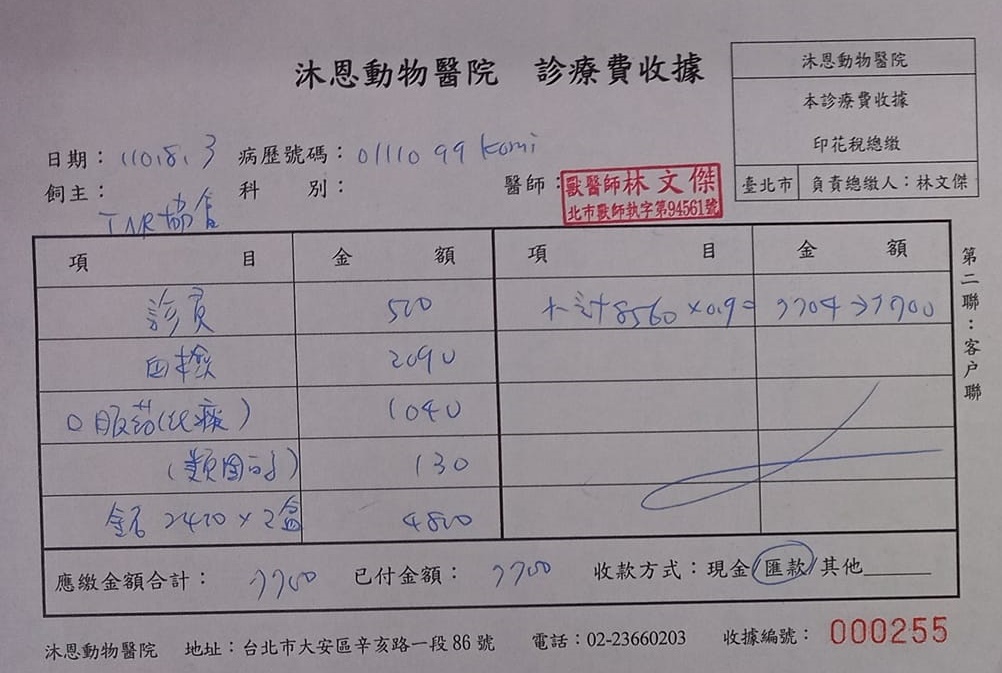 沐恩動物醫院 診療費收據
沐恩動物醫院
本診療費收據
印花稅總繳
臺北市 負責總繳人：林文傑
日期：110.8.3 病歷號碼：0111099 Komi
飼主：TNR協會 科 別： 醫師：獸醫師林文傑
北市獸師執字第94561號
項 目 金 額 項 目 金 額
診費 500 小計8560×0.9= 7704→7700
血檢 2090
口服药(化痰) 1040
(類固醇) 130
2400×2盒 4800
應繳金額合計：7700 已付金額：7700 收款方式：現金/匯款/其他
第二聯：客戶聯
沐恩動物醫院 地址：台北市大安區辛亥路一段86號 電話：02-23660203 收據編號：000255